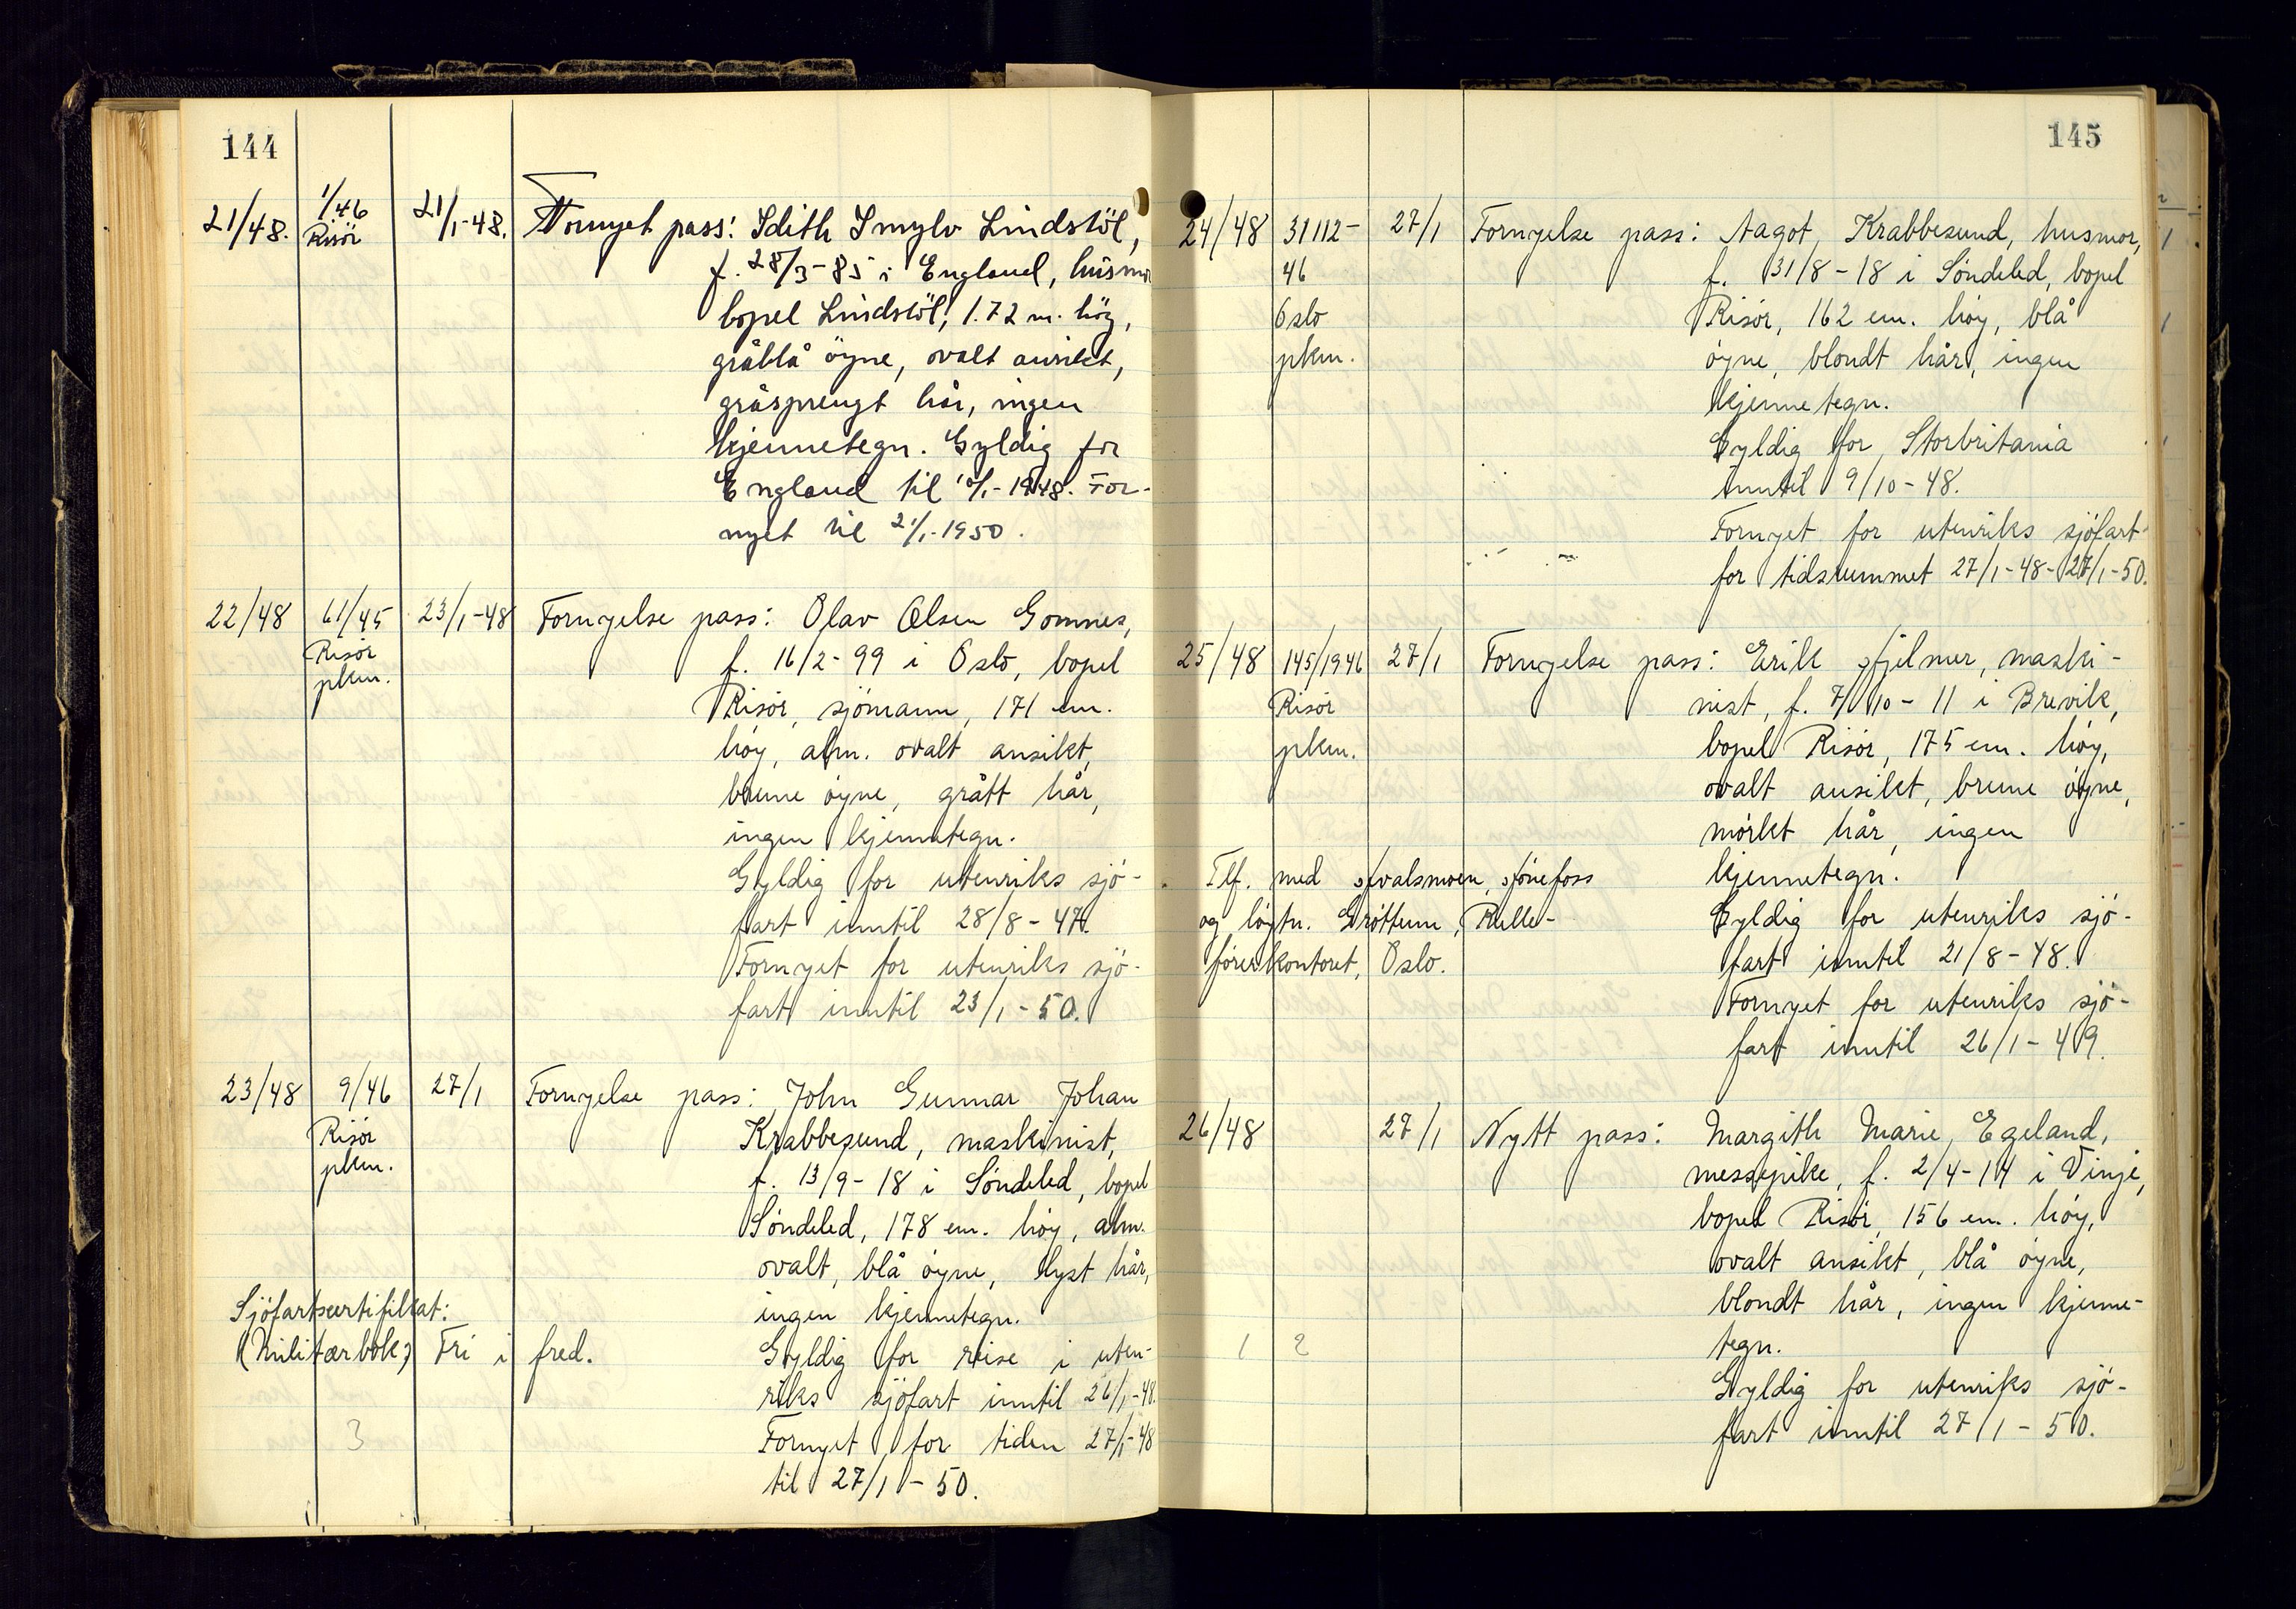 144
21/48. 1/46 Risör 21/1-48. Fornyet pass: Idith Lindstöl,
f. 28/3-85 i England, husmo
bopel Lindstöl, 1.72 m. hög,
gråblå öyne, ovalt ansikt,
gråsprengt hår, ingen
kjennetegn. Gyldig for
England til 1948. For-
nyet til 21/1-1950.
22/48 61/45 Risör pkm. 23/1-48 Fornyelse pass: Olav Olsen Gomnes,
f. 16/2-99 i Oslo, bopel
Risör, sjömann, 171 cm.
höy, alm. ovalt ansikt,
brune öyne, grått hår,
ingen kjennetegn.
Gyldig for utenriks sjö-
fart inntil 28/8-47.
Fornyet for utenriks sjö-
fart inntil 23/1-50.
23/48 9/46 Risör pkm. 27/1 Fornyelse pass: John Gunnar Johan
Krabbesund, maskinist,
f. 13/9-18 i Söndeled, bopel
Söndeled, 178 cm. höy, alm.
ovalt, blå öyne, lyst hår,
ingen kjennetegn.
Sjöfartssertifikat:
(Militærbok) Fri i fred.
Gyldig for reise i uten-
riks sjöfart inntil 26/1-48.
Fornyet for tiden 27/1-48
til 27/1-50.
3
145
24/48 31112-46 Oslo pkm. 27/1 Fornyelse pass: Aagot Krabbesund, husmor,
f. 31/8-18 i Söndeled, bopel
Risör, 162 cm. höy, blå
öyne, blondt hår, ingen
kjennetegn.
Gyldig for Storbritania
inntil 9/10-48.
Fornyet for utenriks sjöfart
for tidsrummet 27/1-48-27/1-50.
25/48 145/1946 Risör pkm. 27/1 Fornyelse pass: Erik Hjelmer, maski-
nist, f. 7/10-11 i Brevik,
bopel Risör, 175 cm. höy,
ovalt ansikt, brune öyne,
mörkt hår, ingen
kjennetegn.
Gyldig for utenriks sjö-
fart inntil 21/8-48.
Fornyet for utenriks sjö-
fart inntil 26/1-49.
Tlf. med Hvalsmoen, Hönefoss
og löytn. Gröttum, Rulle-
förerkontoret, Oslo.
26/48 27/1 Nytt pass: Margith Marie Egeland,
messepike, f. 2/4-14 i Vinje,
bopel Risör, 156 cm. höy,
ovalt ansikt, blå öyne,
blondt hår, ingen kjenne-
tegn.
Gyldig for utenriks sjö-
fart inntil 27/1-50.
1 2